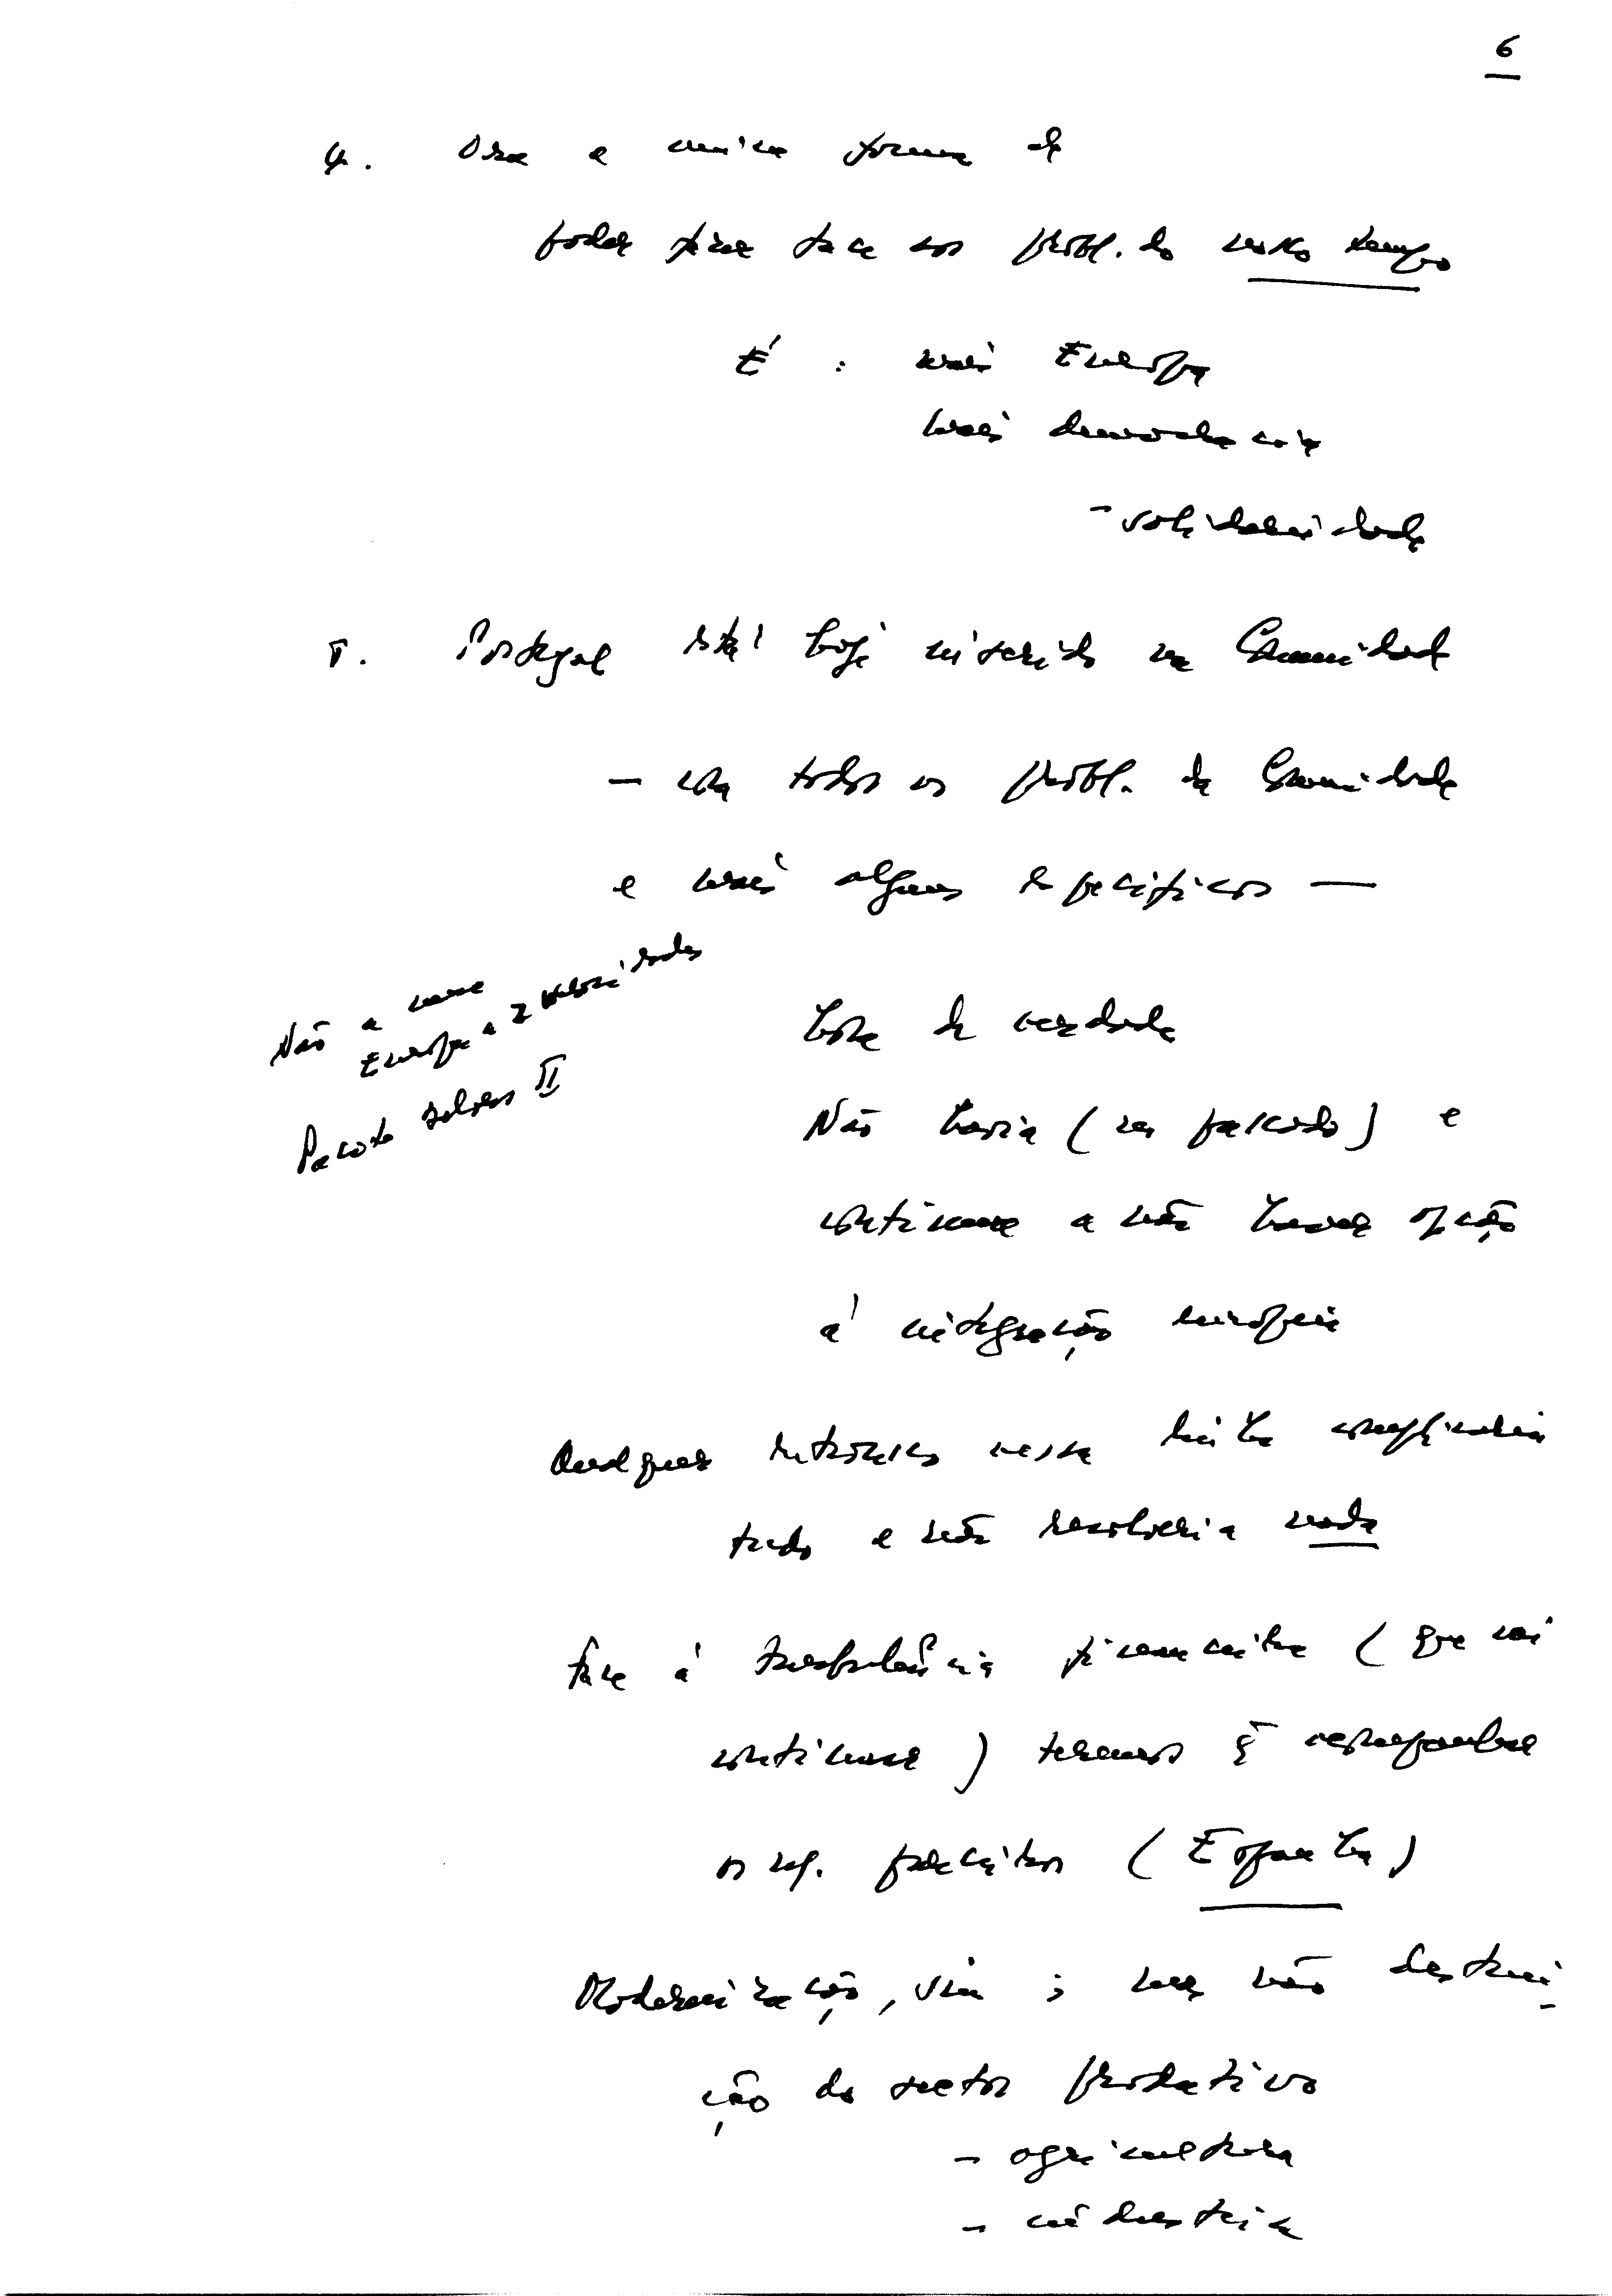 6
4. Ora a unica forma de
poder fazer face aos probl. do nosso tempo
É : mais Europa
mais democracia
- solidariedade
5. Portugal está hoje inserido na Comunidade
— com todos os probl. da Comunidade
e mais alguns especificos —
Não a uma
Europa a 2 velocidades
Pacote Delors II
hora da verdade
Não havia (no passado) e
continua a não haver opção
á integração europeia
Qualquer retrocesso nessa linha complicaria
tudo e não resolveria nada
face á turbulência financeira (que vai
continuar) teremos q̃ resguardar
os resp. (Espanha)
Modernização, sim ; mas não destrui-
ção do sector produtivo
- agricultura
- indústria